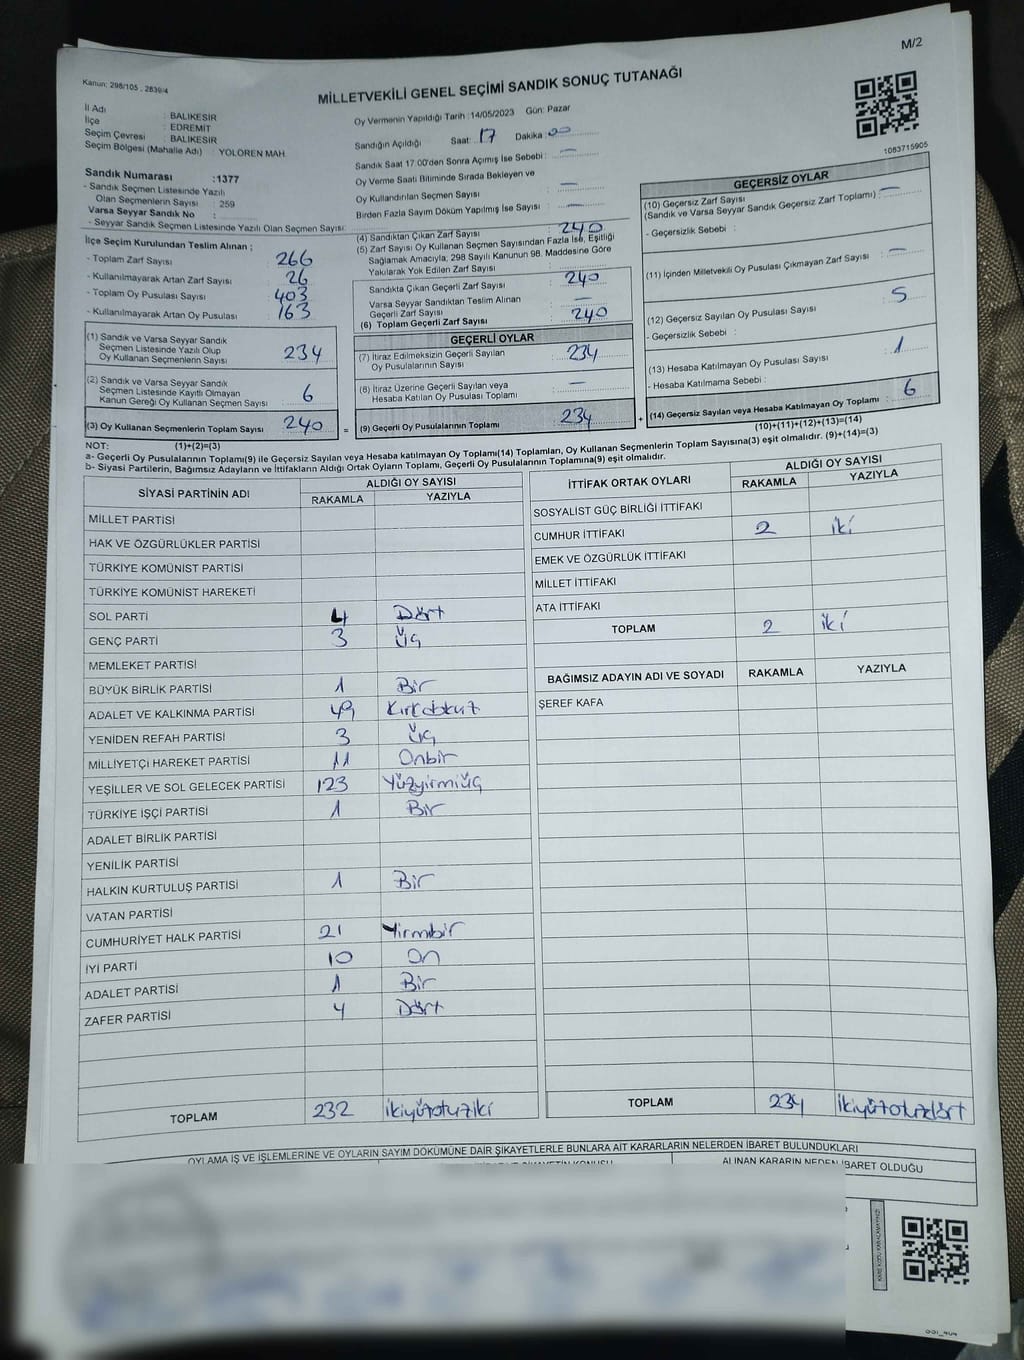 M/2
Kanun: 298/105 , 2839/4
MİLLETVEKİLİ GENEL SEÇİMİ SANDIK SONUÇ TUTANAĞI
İl Adı : BALIKESİR
İlçe : EDREMİT
Seçim Çevresi : BALIKESİR
Seçim Bölgesi (Mahalle Adı) : YOLOREN MAH.
Sandık Numarası :1377
- Sandık Seçmen Listesinde Yazılı
Olan Seçmenlerin Sayısı : 259
Varsa Seyyar Sandık No :
- Seyyar Sandık Seçmen Listesinde Yazılı Olan Seçmen Sayısı:
Oy Vermenin Yapıldığı Tarih :14/05/2023 Gün: Pazar
Sandığın Açıldığı Saat: 17 Dakika: 00
Sandık Saat 17:00'den Sonra Açımış İse Sebebi : —
Oy Verme Saati Bitiminde Sırada Bekleyen ve
Oy Kullandırılan Seçmen Sayısı : —
Birden Fazla Sayım Döküm Yapılmış İse Sayısı : —
1083715905
İlçe Seçim Kurulundan Teslim Alınan ;
- Toplam Zarf Sayısı : 266
- Kullanılmayarak Artan Zarf Sayısı : 26
- Toplam Oy Pusulası Sayısı : 403
- Kullanılmayarak Artan Oy Pusulası : 163
(1) Sandık ve Varsa Seyyar Sandık
Seçmen Listesinde Yazılı Olup
Oy Kullanan Seçmenlerin Sayısı : 234
(2) Sandık ve Varsa Seyyar Sandık
Seçmen Listesinde Kayıtlı Olmayan
Kanun Gereği Oy Kullanan Seçmen Sayısı : 6
(3) Oy Kullanan Seçmenlerin Toplam Sayısı : 240
(4) Sandıktan Çıkan Zarf Sayısı : 240
(5) Zarf Sayısı Oy Kullanan Seçmen Sayısından Fazla İse, Eşitliği
Sağlamak Amacıyla, 298 Sayılı Kanunun 98. Maddesine Göre
Yakılarak Yok Edilen Zarf Sayısı :
Sandıkta Çıkan Geçerli Zarf Sayısı : 240
Varsa Seyyar Sandıktan Teslim Alınan
Geçerli Zarf Sayısı : —
(6) Toplam Geçerli Zarf Sayısı : 240
GEÇERLİ OYLAR
(7) İtiraz Edilmeksizin Geçerli Sayılan
Oy Pusulalarının Sayısı : 234
(8) İtiraz Üzerine Geçerli Sayılan veya
Hesaba Katılan Oy Pusulası Toplamı : —
= (9) Geçerli Oy Pusulalarının Toplamı : 234 +
GEÇERSİZ OYLAR
(10) Geçersiz Zarf Sayısı
(Sandık ve Varsa Seyyar Sandık Geçersiz Zarf Toplamı) : —
- Geçersizlik Sebebi :
(11) İçinden Milletvekili Oy Pusulası Çıkmayan Zarf Sayısı : —
(12) Geçersiz Sayılan Oy Pusulası Sayısı : 5
- Geçersizlik Sebebi :
(13) Hesaba Katılmayan Oy Pusulası Sayısı : 1
- Hesaba Katılmama Sebebi :
(14) Geçersiz Sayılan veya Hesaba Katılmayan Oy Toplamı : 6
NOT: (1)+(2)=(3)
(10)+(11)+(12)+(13)=(14)
a- Geçerli Oy Pusulalarının Toplamı(9) ile Geçersiz Sayılan veya Hesaba katılmayan Oy Toplamı(14) Toplamları, Oy Kullanan Seçmenlerin Toplam Sayısına(3) eşit olmalıdır. (9)+(14)=(3)
b- Siyasi Partilerin, Bağımsız Adayların ve İttifakların Aldığı Ortak Oyların Toplamı, Geçerli Oy Pusulalarının Toplamına(9) eşit olmalıdır.
SİYASİ PARTİNİN ADI ALDIĞI OY SAYISI
RAKAMLA YAZIYLA
MİLLET PARTİSİ
HAK VE ÖZGÜRLÜKLER PARTİSİ
TÜRKİYE KOMÜNİST PARTİSİ
TÜRKİYE KOMÜNİST HAREKETİ
SOL PARTİ 4 Dört
GENÇ PARTİ 3 Üç
MEMLEKET PARTİSİ
BÜYÜK BİRLİK PARTİSİ 1 Bir
ADALET VE KALKINMA PARTİSİ 49 Kırkdokuz
YENİDEN REFAH PARTİSİ 3 Üç
MİLLİYETÇİ HAREKET PARTİSİ 11 Onbir
YEŞİLLER VE SOL GELECEK PARTİSİ 123 Yüzyirmiüç
TÜRKİYE İŞÇİ PARTİSİ 1 Bir
ADALET BİRLİK PARTİSİ
YENİLİK PARTİSİ
HALKIN KURTULUŞ PARTİSİ 1 Bir
VATAN PARTİSİ
CUMHURİYET HALK PARTİSİ 21 Yirmibir
İYİ PARTİ 10 On
ADALET PARTİSİ 1 Bir
ZAFER PARTİSİ 4 Dört
TOPLAM 232 ikiyüzotuziki
İTTİFAK ORTAK OYLARI ALDIĞI OY SAYISI
RAKAMLA YAZIYLA
SOSYALİST GÜÇ BİRLİĞİ İTTİFAKI
CUMHUR İTTİFAKI 2 iki
EMEK VE ÖZGÜRLÜK İTTİFAKI
MİLLET İTTİFAKI
ATA İTTİFAKI
TOPLAM 2 iki
BAĞIMSIZ ADAYIN ADI VE SOYADI RAKAMLA YAZIYLA
ŞEREF KAFA
TOPLAM 234 ikiyüzotuzdört
OYLAMA İŞ VE İŞLEMLERİNE VE OYLARIN SAYIM DÖKÜMÜNE DAİR ŞİKAYETLERLE BUNLARA AİT KARARLARIN NELERDEN İBARET BULUNDUKLARI
ALINAN KARARIN NEDEN İBARET OLDUĞU